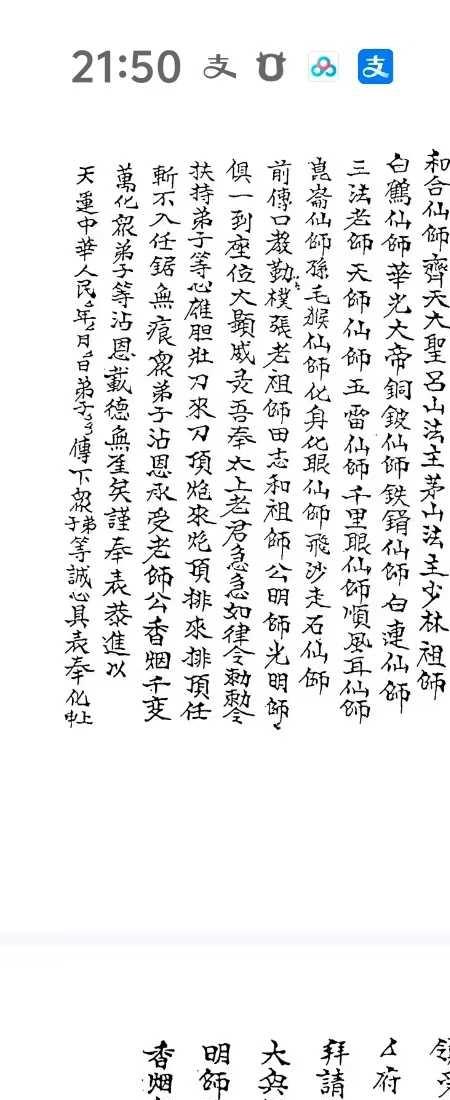 21:50
和合仙師齊天大聖呂山法主茅山法主少林祖師
白鶴仙師華光大帝銅鈸仙師鉄鎖仙師白連仙師
三法老師天師仙師五雷仙師千里眼仙師順風耳仙師
崑崙仙師孫毛猴仙師化身化眼仙師飛沙走石仙師
前傳口教勤樸張老祖師田志和祖師公明師光明師
俱一到座位大顯威灵吾奉太上老君急急如律令勅勅令
扶持弟子等心雄胆壯刀來刀頂炮來炮頂排來排頂任
斬不入任鋸無痕眾弟子沾恩承受老師公香烟千变
萬化眾弟子等沾恩載德無涯矣謹奉表恭進以
天運中華人民年月日弟子傳下眾弟子等誠心具表奉化上申
領受
府
拜請
大兴
明師
香烟